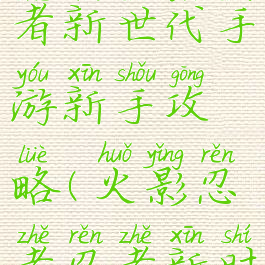 者新世代手
yóu xīn shǒu gōng
游新手攻
lüè huǒ yǐng rěn
略(火影忍
zhě rěn zhě xīn shí
者忍者新时